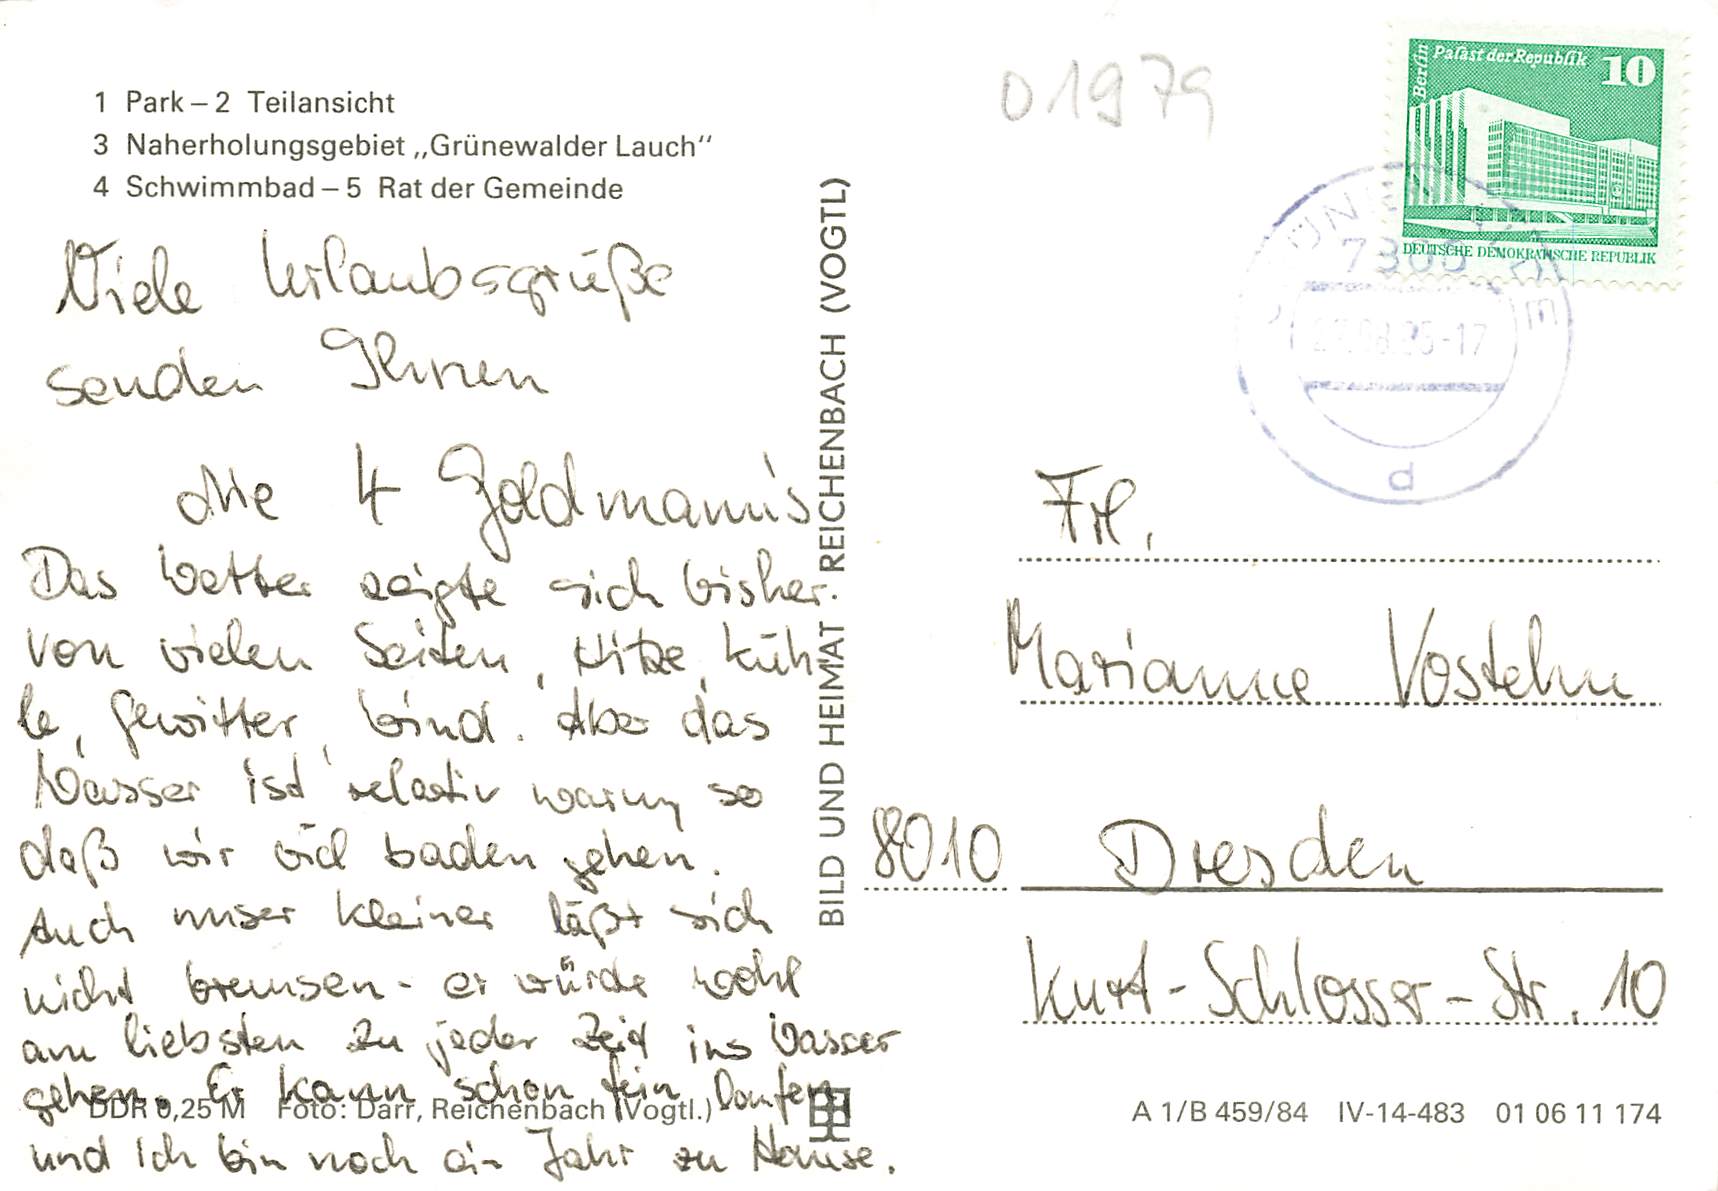 1 Park – 2 Teilansicht
3 Naherholungsgebiet „Grünewalder Lauch“
4 Schwimmbad – 5 Rat der Gemeinde
Viele Urlaubsgrüße
senden Ihnen
die 4 Goldmann's
Das Wetter zeigte sich bisher
von vielen Seiten, Hitze, Küh-
le, Gewitter, Wind. Aber das
Wasser ist relativ warm, so
daß wir viel baden gehen.
Auch unser kleiner läßt sich
nicht bremsen - er würde wohl
am liebsten zu jeder Zeit ins Wasser
gehen. Er kann schon fein laufen
und ich bin noch ein Jahr zu Hause.
DDR 0,25 M Foto: Darr, Reichenbach (Vogtl.)
BILD UND HEIMAT REICHENBACH (VOGTL)
01979
Berlin Palast der Republik 10
DEUTSCHE DEMOKRATISCHE REPUBLIK
-17
d
Frl.
Marianne Vostehn
8010 Dresden
Kurt-Schlosser-Str. 10
A 1/B 459/84 IV-14-483 01 06 11 174